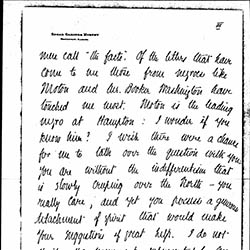 EDGAR GARDNER MURPHY
MONTGOMERY, ALABAMA
III
mine call "the facts". Of the letters that have
come to me those from negroes like
Moton and Mr. Booker Washington have
touched me most. Moton is the leading
negro at Hampton: I wonder if you
know him? I wish there were a chance
for me to talk over the question with you.
You are without the indifferentism that
is slowly creeping over the North - you
really care; and yet you possess a generous
detachment of spirit that would make
your suggestions of great help. I do not